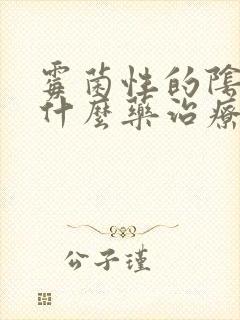 霉菌性的陰
什麼藥治療
公子瑾